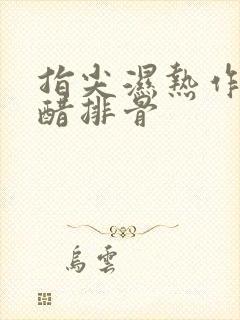 指尖濕熱作
醋排骨
烏雲